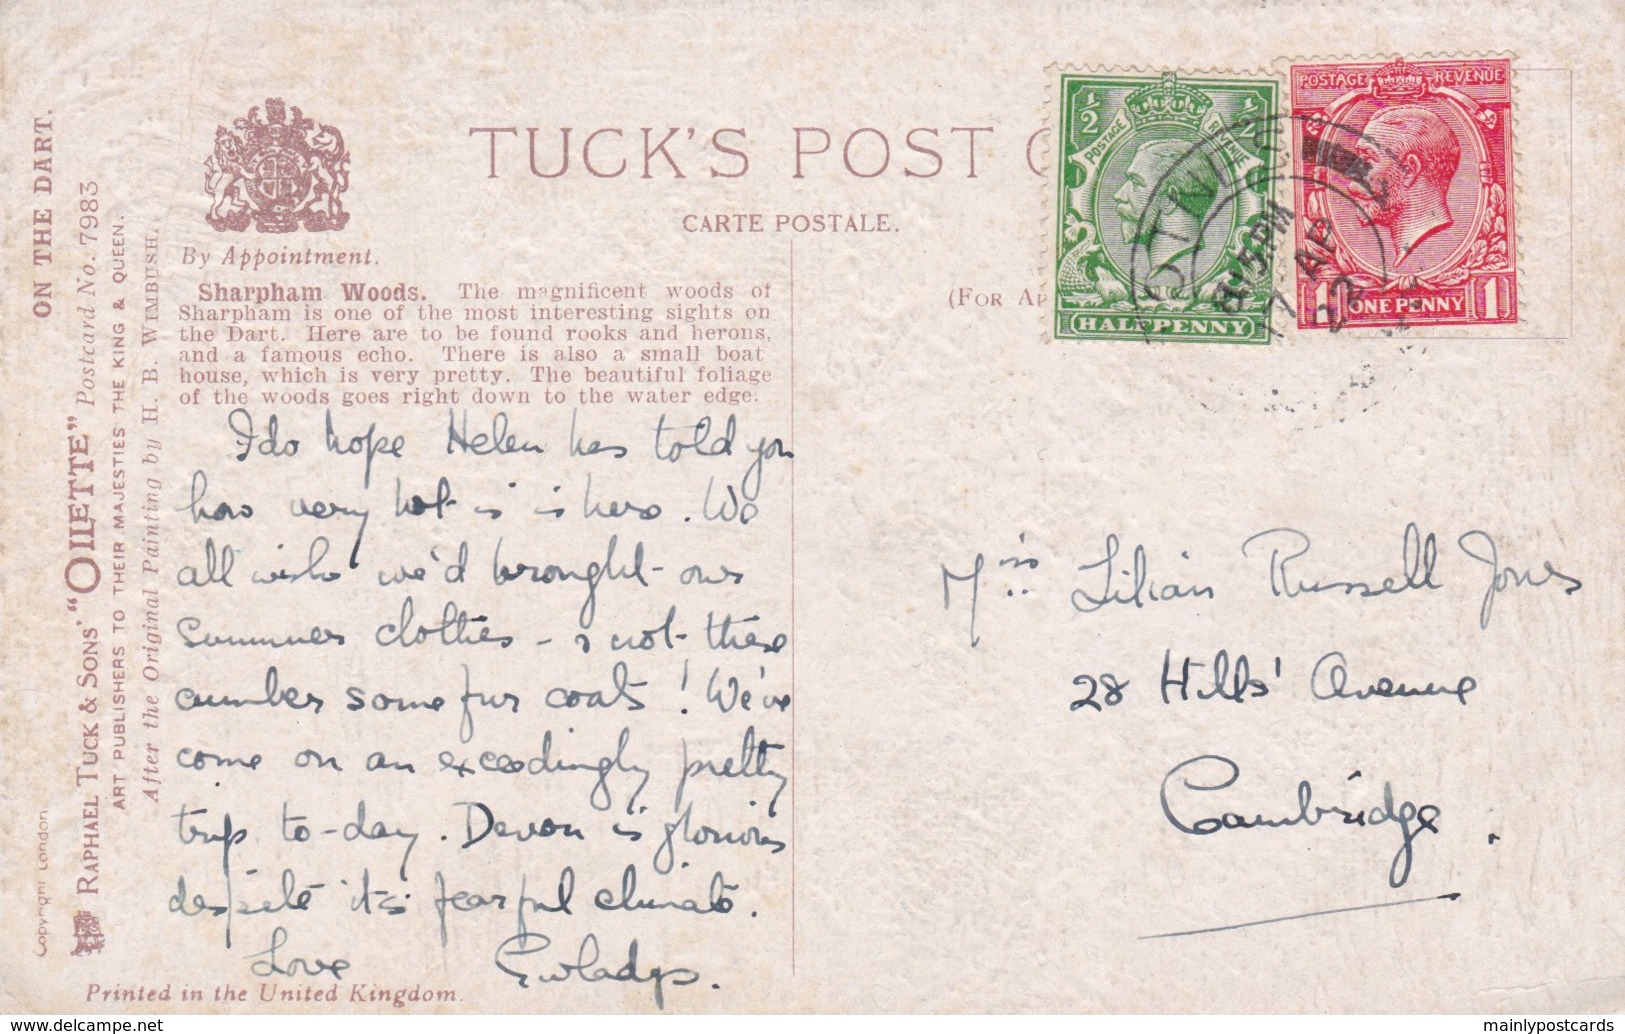 ON THE DART.
RAPHAEL TUCK & SONS' "OILETTE" Postcard No. 7983
ART PUBLISHERS TO THEIR MAJESTIES THE KING & QUEEN.
After the Original Painting by H. B. WIMBUSH.
Copyright London
TUCK'S POST C
CARTE POSTALE.
By Appointment.
(FOR A
Sharpham Woods. The magnificent woods of
Sharpham is one of the most interesting sights on
the Dart. Here are to be found rooks and herons,
and a famous echo. There is also a small boat
house, which is very pretty. The beautiful foliage
of the woods goes right down to the water edge.
I do hope Helen has told you
how very hot is is here. We
all wish we'd brought our
Summer clothes - & not these
cumber some fur coats! We've
come on an exceedingly pretty
trip to-day. Devon is glorious
despite it's fearful climate.
Love Gwladys.
Printed in the United Kingdom.
½ ½
POSTAGE REVENUE
HALFPENNY
POSTAGE REVENUE
1 ONE PENNY 1
PM
17 AP
22
Miss Lilian Russell Jones
28 Hills' Avenue
Cambridge.
www.delcampe.net
mainlypostcards